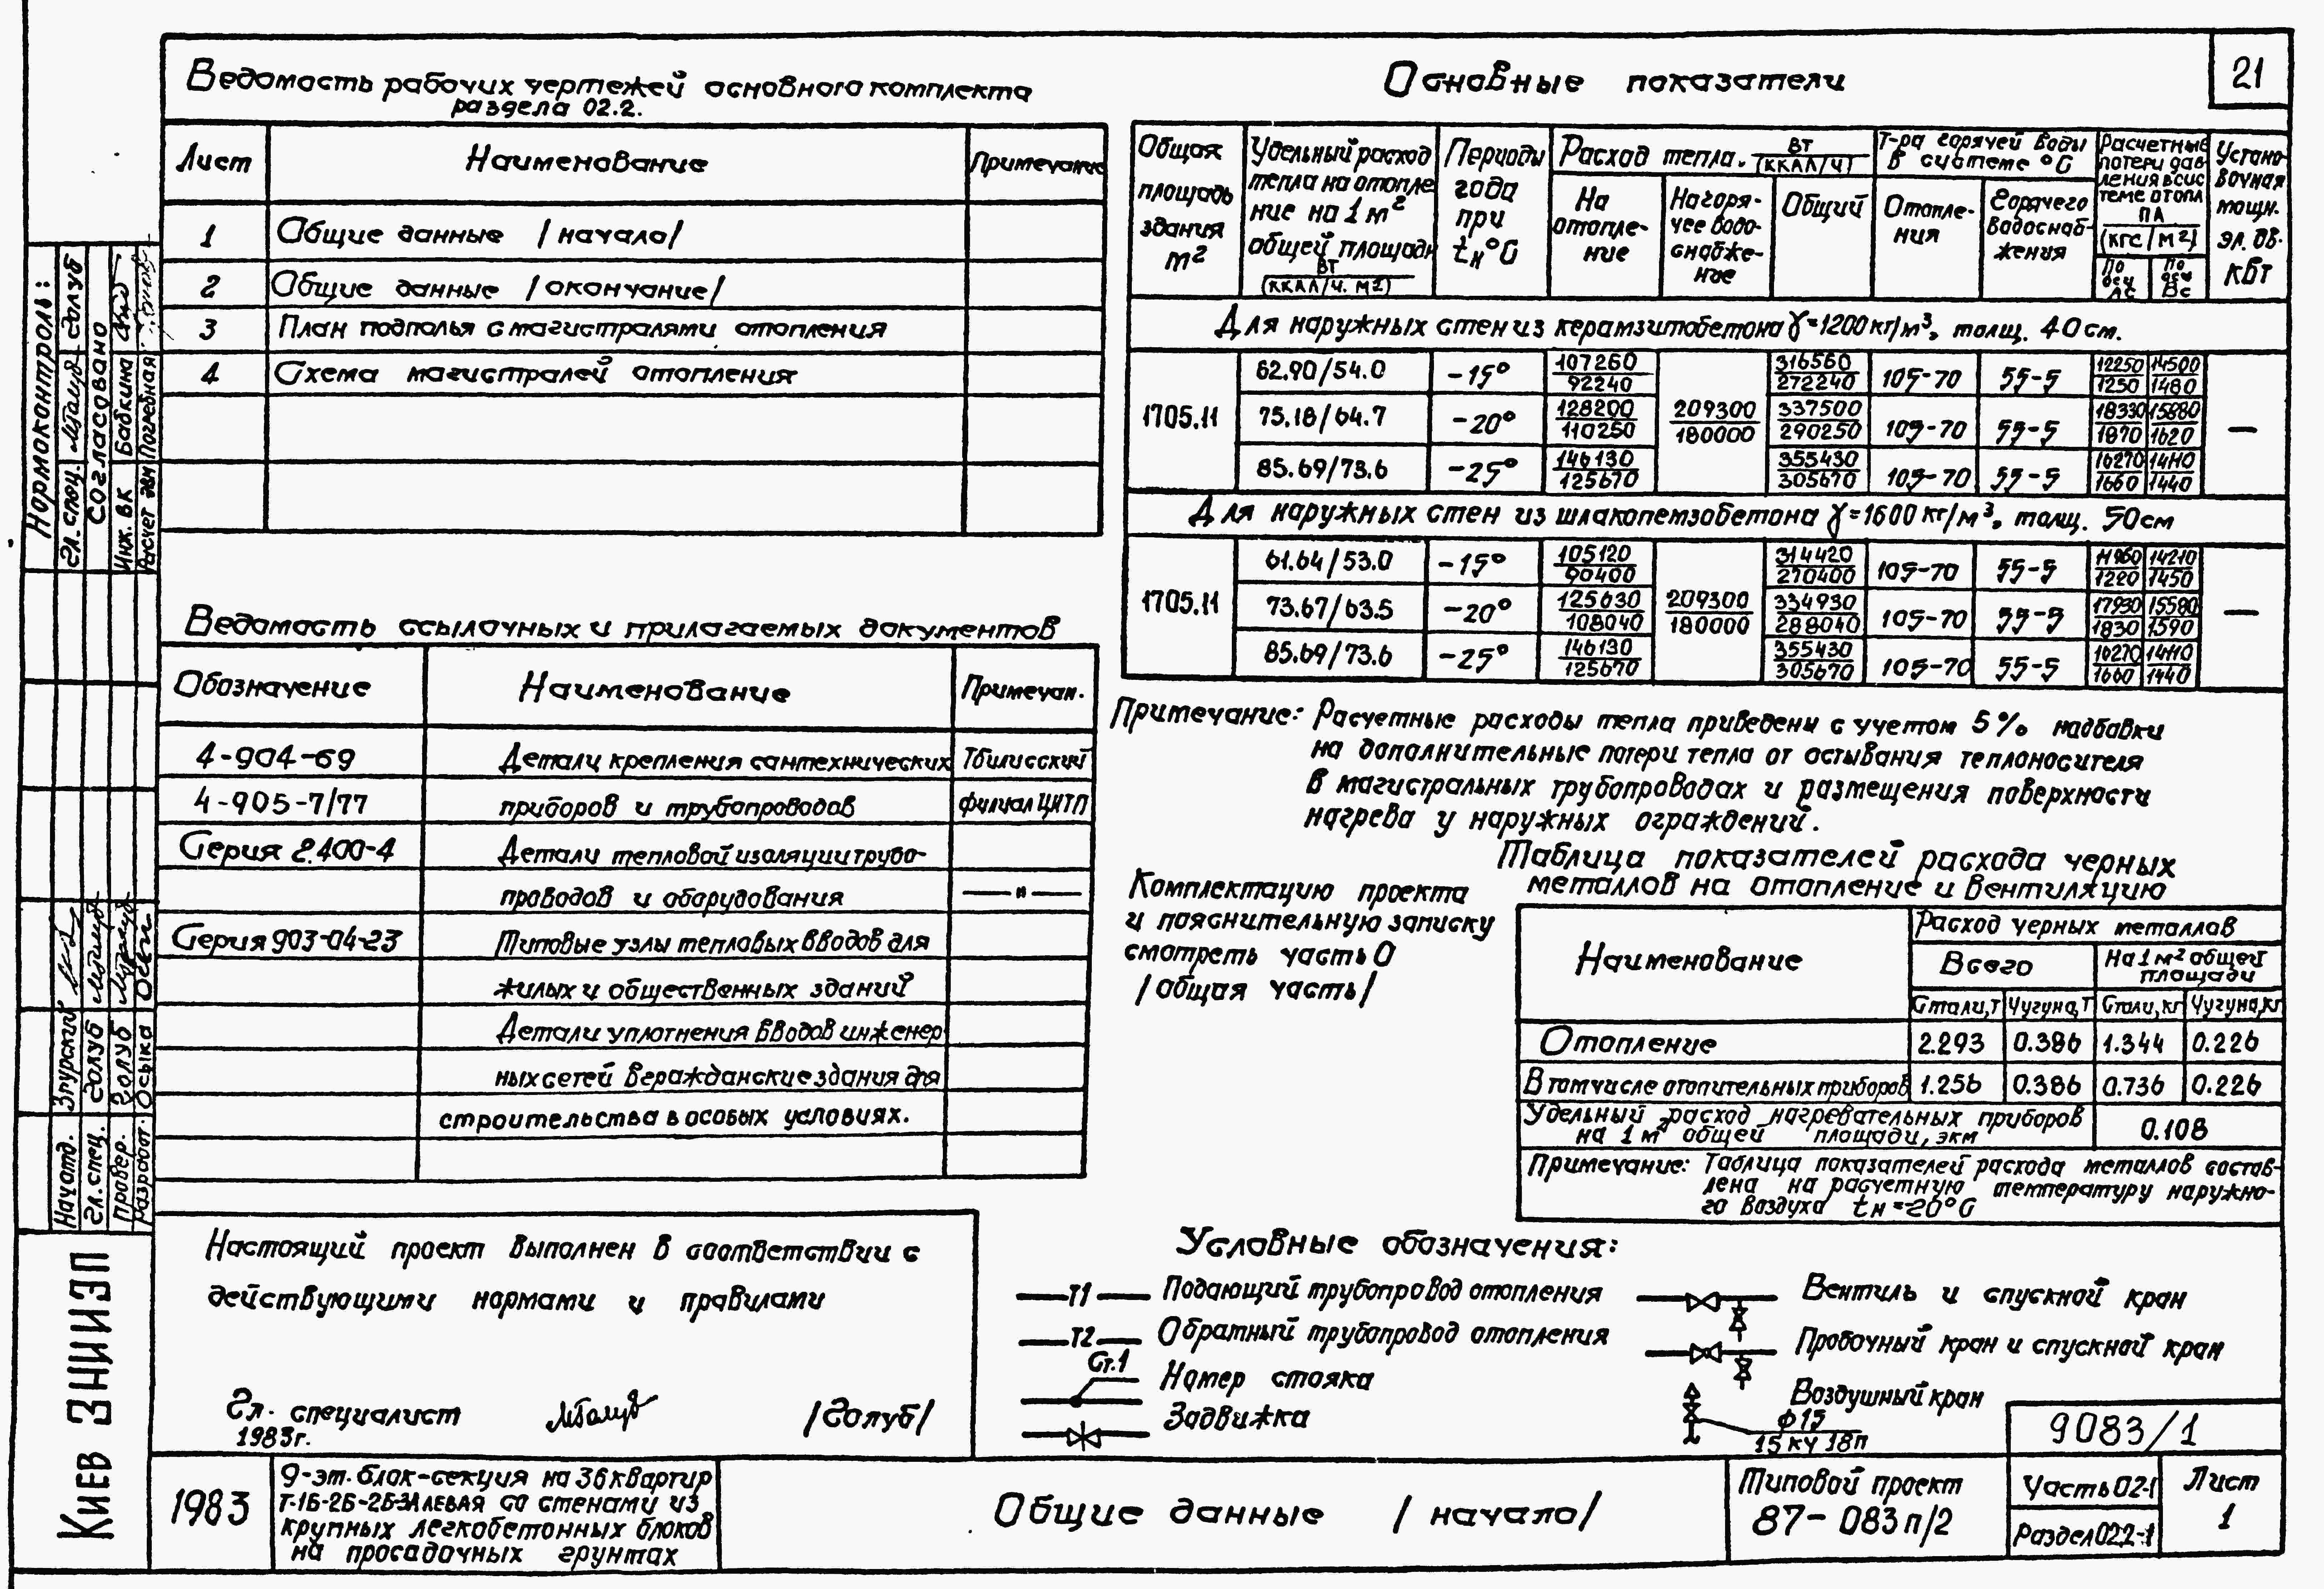 21
Ведомость рабочих чертежей основного комплекта
раздела 02.2.
Лист Наименование Примечание
1 Общие данные /начало/
2 Общие данные /окончание/
3 План подполья с магистралями отопления
4 Схема магистралей отопления
Ведомость ссылочных и прилагаемых документов
Обозначение Наименование Примечан.
4-904-69 Детали крепления сантехнических Тбилисский
4-905-7/77 приборов и трубопроводов филиал ЦИТП
Серия 2.400-4 Детали тепловой изоляции трубо-
проводов и оборудования —"—
Серия 903-04-23 Типовые узлы тепловых вводов для
жилых и общественных зданий
Детали уплотнения вводов инженер
ных сетей в гражданские здания для
строительства в особых условиях.
Настоящий проект выполнен в соответствии с
действующими нормами и правилами
Гл. специалист /Голуб/
1983г.
Основные показатели
Общая площадь здания м²
Удельный расход тепла на отопление на 1 м² общей площади ВТ (ККАЛ/Ч. М2)
Периоды года при tн °С
Расход тепла. ВТ (ККАЛ/Ч)
На отопле-ние
На горя-чее водо-снабже-ние
Общий
Т-ра горячей воды в системе °С
Отопле-ния
Горячего водоснаб-жения
Расчетные потери дав-ления в сис теме отопл ПА (КГС/М2)
По оси Ас
По оси Вс
Устано-вочная мощн. эл. дв. кВт
Для наружных стен из керамзитобетона γ=1200 кг/м³, толщ. 40 см.
1705.11
62.90/54.0 -15° 107260/92240 316560/272240 105-70 55-5 12250/1250 14500/1480
75.18/64.7 -20° 128200/110250 209300/180000 337500/290250 105-70 55-5 18330/1870 15880/1620 —
85.69/73.6 -25° 146130/125670 355430/305670 105-70 55-5 16270/1660 14110/1440
Для наружных стен из шлакопемзобетона γ=1600 кг/м³, толщ. 50 см
1705.11
61.64/53.0 -15° 105120/90400 314420/270400 105-70 55-5 11960/1220 14210/1450
73.67/63.5 -20° 125630/108040 209300/180000 334930/288040 105-70 55-5 17930/1830 15580/1590 —
85.69/73.6 -25° 146130/125670 355430/305670 105-70 55-5 16270/1660 14110/1440
Примечание: Расчетные расходы тепла приведены с учетом 5% надбавки
на дополнительные потери тепла от остывания теплоносителя
в магистральных трубопроводах и размещения поверхности
нагрева у наружных ограждений.
Комплектацию проекта
и пояснительную записку
смотреть часть 0
/общая часть/
Таблица показателей расхода черных
металлов на отопление и вентиляцию
Наименование
Расход черных металлов
Всего На 1 м² общей площади
Стали, т Чугуна, т Стали, кг Чугуна, кг
Отопление 2.293 0.386 1.344 0.226
В том числе отопительных приборов 1.256 0.386 0.736 0.226
Удельный расход нагревательных приборов
на 1 м² общей площади, экм 0.108
Примечание: Таблица показателей расхода металлов состав-
лена на расчетную температуру наружно-
го воздуха tн=-20°С
Условные обозначения:
Т1 Подающий трубопровод отопления
Т2 Обратный трубопровод отопления
Ст.1 Номер стояка
Задвижка
Вентиль и спускной кран
Пробочный кран и спускной кран
Воздушный кран
ф15
15 кч 18п
9083/1
1983
9-эт. блок-секция на 36 квартир
Т-1Б-2Б-2Б-3А ЛЕВАЯ со стенами из
крупных легкобетонных блоков
на просадочных грунтах
Общие данные /начало/
Типовой проект
87-083п/2
Часть 02-1
Раздел 02.2-1
Лист
1
Нормоконтроль:
Гл. спец. Голуб
Согласовано
Инж. ВК Бабкина
Расчет эвм Погребная
Нач. отд. Згурский
Гл. спец. Голуб
Провер. Голуб
Разработ. Осыка
Киев ЗНИИЭП